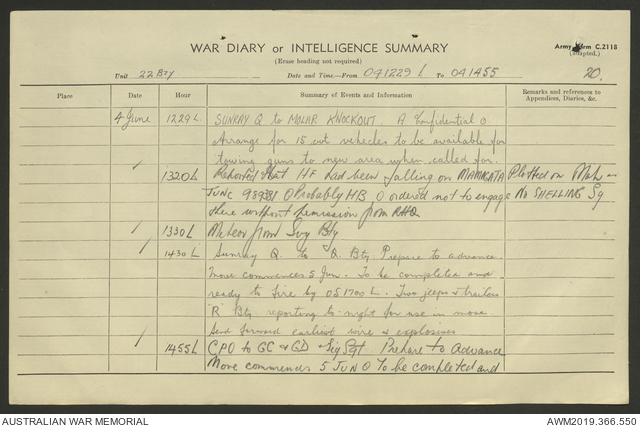 WAR DIARY or INTELLIGENCE SUMMARY
Army Form C.2118
(Erase heading not required)
(adapted.)
Unit 22 Bty Date and Time—From 041229 L To 041455 20.
Place Date Hour Summary of Events and Information Remarks and references to Appendices, Diaries, &c.
4 June 1229 L SUNRAY Q to MOLAR KNOCKOUT. A Confidential O
Arrange for 15 cwt vehicles to be available for
towing guns to new area when called for.
1320 L Reported that HF had been falling on MAMAGATA Plotted on Map
JUNC O Probably HB O ordered not to engage No SHELLING Sq
there without permission from RHQ
1330 L Meteor from Svy Bty
1430 L Sunray Q to Q Bty Prepare to advance.
Move commences 5 Jun. To be completed and
ready to fire by 051700 L. Two jeeps & trailers
"R" Bty reporting to-night for use in move.
Send forward earliest wire & explosives
1455 L CPO to GC & GD & Sig Sgt. Prepare to Advance
Move commences 5 JUN O To be completed and
AUSTRALIAN WAR MEMORIAL
AWM2019.366.550